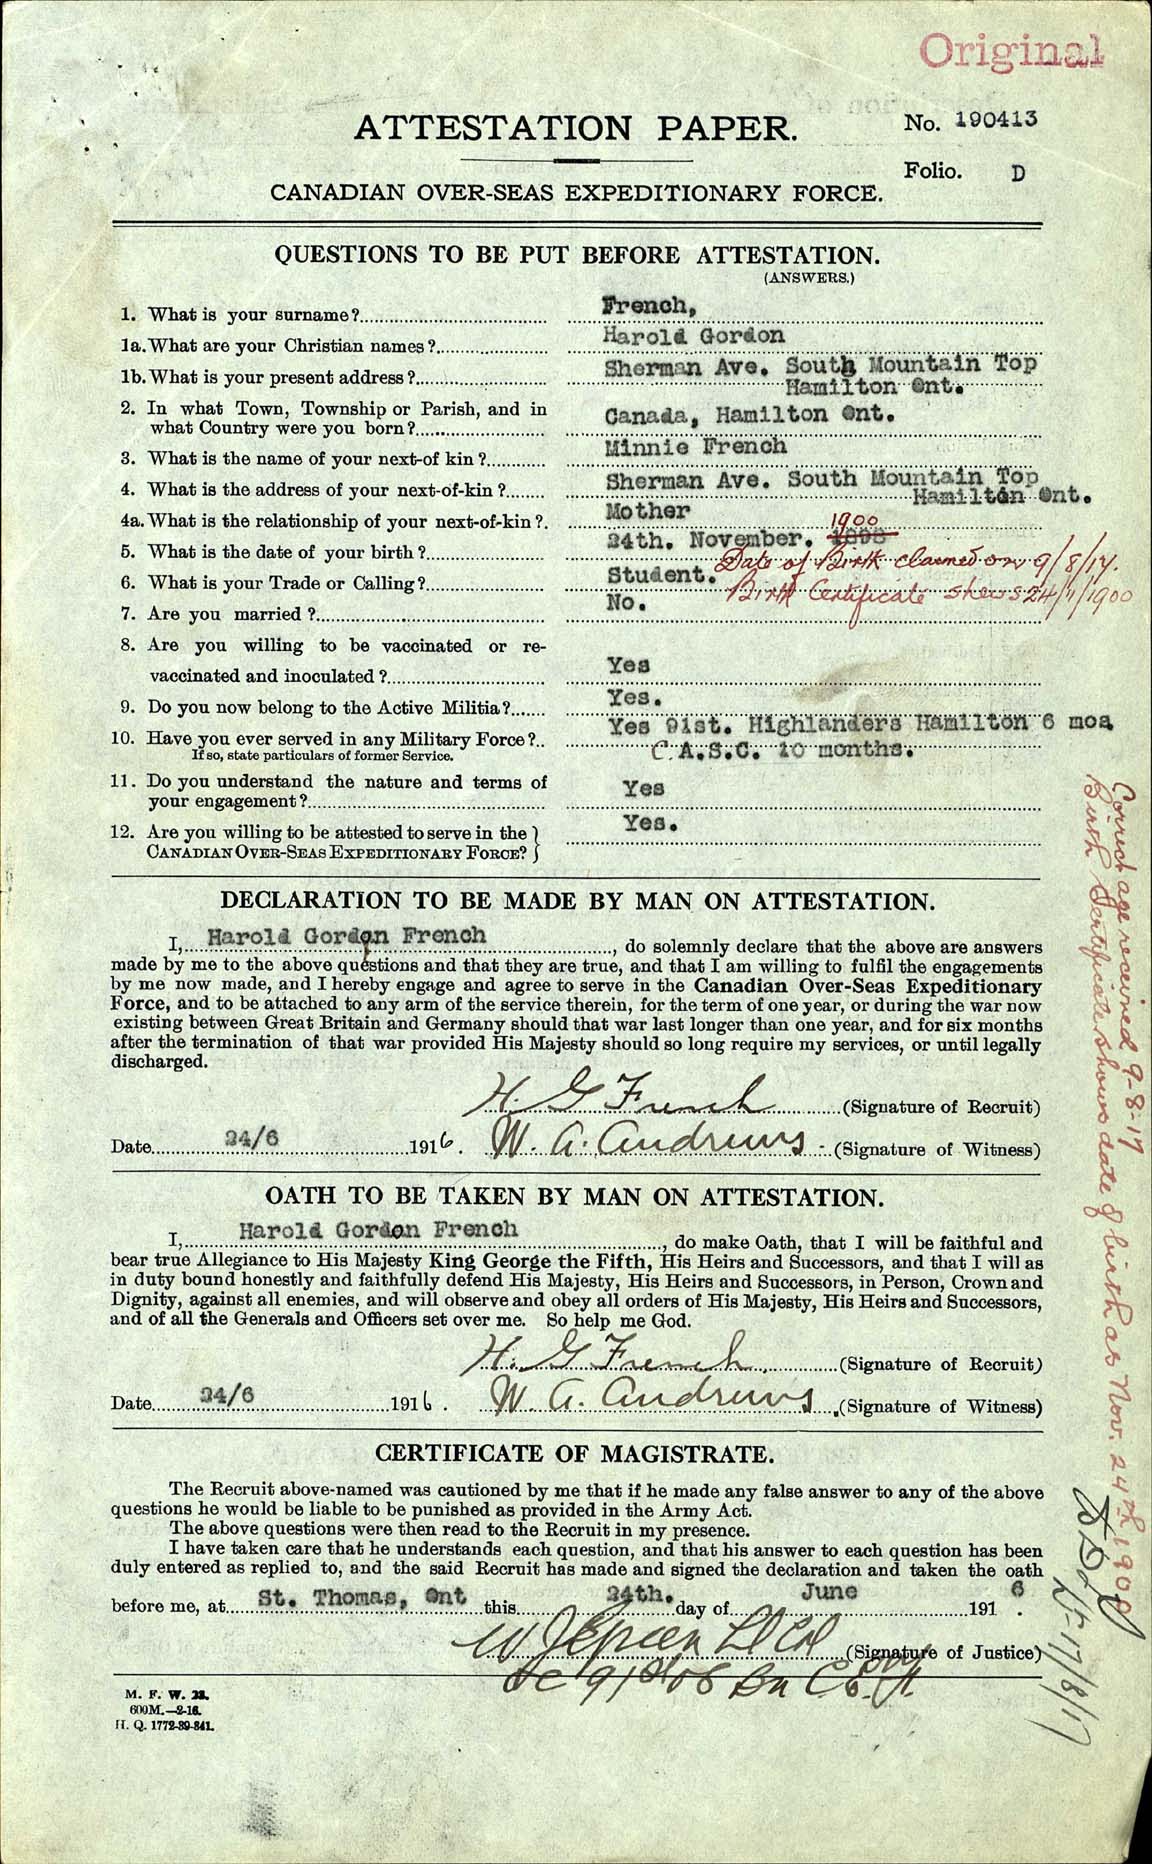 Original
ATTESTATION PAPER.
No. 190413
Folio. D
CANADIAN OVER-SEAS EXPEDITIONARY FORCE.
QUESTIONS TO BE PUT BEFORE ATTESTATION.
(ANSWERS.)
1. What is your surname?
French,
1a. What are your Christian names?
Harold Gordon
1b. What is your present address?
Sherman Ave. South Mountain Top
Hamilton Ont.
2. In what Town, Township or Parish, and in
what Country were you born?
Canada, Hamilton Ont.
3. What is the name of your next-of kin?
Minnie French
4. What is the address of your next-of-kin?
Sherman Ave. South Mountain Top
Hamilton Ont.
4a. What is the relationship of your next-of-kin?
Mother
5. What is the date of your birth?
24th. November. 1898 1900
Date of Birth claimed on 9/8/17.
6. What is your Trade or Calling?
Student.
Birth Certificate shews 24/11/1900
7. Are you married?
No.
8. Are you willing to be vaccinated or re-
vaccinated and inoculated?
Yes
9. Do you now belong to the Active Militia?
Yes.
10. Have you ever served in any Military Force?
If so, state particulars of former Service.
Yes 91st. Highlanders Hamilton 6 mos
C.A.S.C. 10 months.
11. Do you understand the nature and terms of
your engagement?
Yes
12. Are you willing to be attested to serve in the
CANADIAN OVER-SEAS EXPEDITIONARY FORCE?
Yes.
Correct age received 9-8-17
Birth Certificate shows date of birth as Nov. 24th 1900
17/8/17
DECLARATION TO BE MADE BY MAN ON ATTESTATION.
I, Harold Gordon French, do solemnly declare that the above are answers
made by me to the above questions and that they are true, and that I am willing to fulfil the engagements
by me now made, and I hereby engage and agree to serve in the Canadian Over-Seas Expeditionary
Force, and to be attached to any arm of the service therein, for the term of one year, or during the war now
existing between Great Britain and Germany should that war last longer than one year, and for six months
after the termination of that war provided His Majesty should so long require my services, or until legally
discharged.
H. G French (Signature of Recruit)
Date 24/6 1916. W. A. Andrews (Signature of Witness)
OATH TO BE TAKEN BY MAN ON ATTESTATION.
I, Harold Gordon French, do make Oath, that I will be faithful and
bear true Allegiance to His Majesty King George the Fifth, His Heirs and Successors, and that I will as
in duty bound honestly and faithfully defend His Majesty, His Heirs and Successors, in Person, Crown and
Dignity, against all enemies, and will observe and obey all orders of His Majesty, His Heirs and Successors,
and of all the Generals and Officers set over me. So help me God.
H. G French (Signature of Recruit)
Date 24/6 1916. W. A. Andrews (Signature of Witness)
CERTIFICATE OF MAGISTRATE.
The Recruit above-named was cautioned by me that if he made any false answer to any of the above
questions he would be liable to be punished as provided in the Army Act.
The above questions were then read to the Recruit in my presence.
I have taken care that he understands each question, and that his answer to each question has been
duly entered as replied to, and the said Recruit has made and signed the declaration and taken the oath
before me, at St. Thomas, Ont this 24th. day of June 1916.
W J Green Lt Col (Signature of Justice)
OC 91st OS Bn C.E.F.
M. F. W. 23.
600M.—2-16.
H. Q. 1772-39-841.